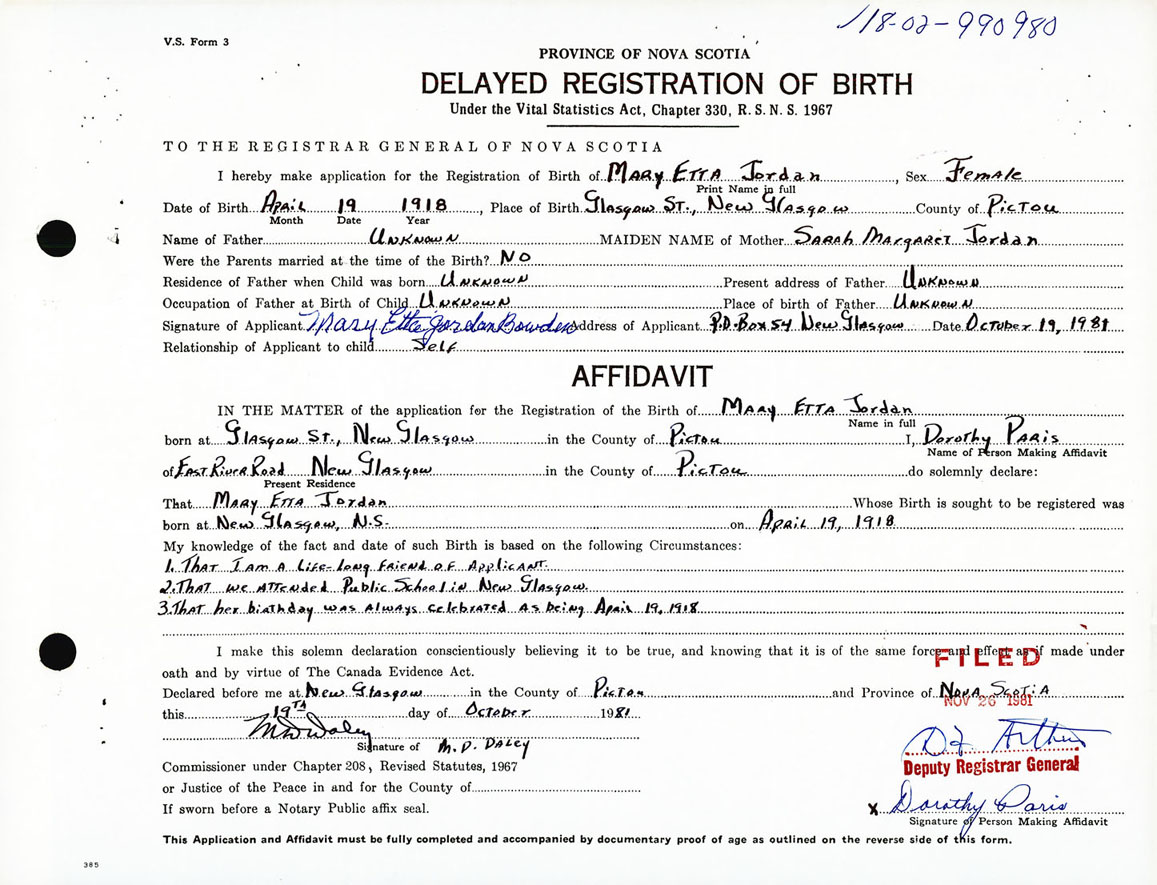 118-02-990980
V.S. Form 3
PROVINCE OF NOVA SCOTIA
DELAYED REGISTRATION OF BIRTH
Under the Vital Statistics Act, Chapter 330, R. S. N. S. 1967
TO THE REGISTRAR GENERAL OF NOVA SCOTIA
I hereby make application for the Registration of Birth of Mary Etta Jordan, Sex Female
Print Name in full
Date of Birth April 19 1918, Place of Birth Glasgow St., New Glasgow County of Pictou
Month Date Year
Name of Father Unknown MAIDEN NAME of Mother Sarah Margaret Jordan
Were the Parents married at the time of the Birth? No
Residence of Father when Child was born Unknown Present address of Father Unknown
Occupation of Father at Birth of Child Unknown Place of birth of Father Unknown
Signature of Applicant Mary Etta Jordan Bowden Address of Applicant P.O. Box 54 New Glasgow Date October 19, 1981
Relationship of Applicant to child Self
AFFIDAVIT
IN THE MATTER of the application for the Registration of the Birth of Mary Etta Jordan
Name in full
born at Glasgow St., New Glasgow in the County of Pictou I, Dorothy Paris
Name of Person Making Affidavit
of East River Road New Glasgow in the County of Pictou do solemnly declare:
Present Residence
That Mary Etta Jordan Whose Birth is sought to be registered was
born at New Glasgow, N.S. on April 19, 1918
My knowledge of the fact and date of such Birth is based on the following Circumstances:
1. That I am a life-long friend of applicant.
2. That we attended Public School in New Glasgow.
3. That her birthday was always celebrated as being April 19, 1918
I make this solemn declaration conscientiously believing it to be true, and knowing that it is of the same force and effect as if made under
oath and by virtue of The Canada Evidence Act.
FILED
Declared before me at New Glasgow in the County of Pictou and Province of Nova Scotia
NOV 26 1981
this 19th day of October 1981
M D Daley
Signature of M. D. Daley
D Arthur
Deputy Registrar General
Commissioner under Chapter 208, Revised Statutes, 1967
or Justice of the Peace in and for the County of
If sworn before a Notary Public affix seal.
x Dorothy Paris
Signature of Person Making Affidavit
This Application and Affidavit must be fully completed and accompanied by documentary proof of age as outlined on the reverse side of this form.
385